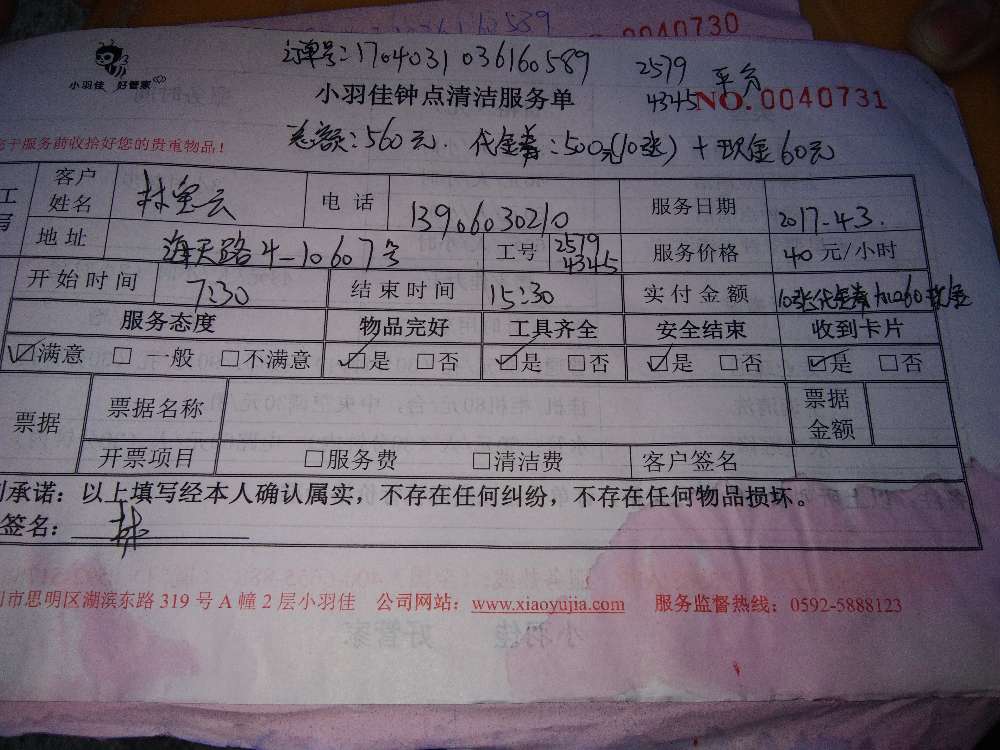 0040730
订单号:1704031036160589
2579 平台
4345
小羽佳 好管家
小羽佳钟点清洁服务单
NO. 0040731
于服务前收拾好您的贵重物品!
总额:560元. 代金券:500元(10张)+现金60元
客户姓名 电话 13906030210 服务日期 2017-4.3.
地址 海天路4-10607 工号 2579 4345 服务价格 40 元/小时
开始时间 7:30 结束时间 15:30 实付金额 10张代金券
服务态度 物品完好 工具齐全 安全结束 收到卡片
☑满意 □一般 □不满意 ☑是 □否 ☑是 □否 ☑是 □否 ☑是 □否
票据 票据名称 票据金额
开票项目 □服务费 □清洁费 客户签名
承诺:以上填写经本人确认属实,不存在任何纠纷,不存在任何物品损坏。
签名: 林
市思明区湖滨东路 319 号 A 幢 2 层小羽佳 公司网站:www.xiaoyujia.com 服务监督热线:0592-5888123